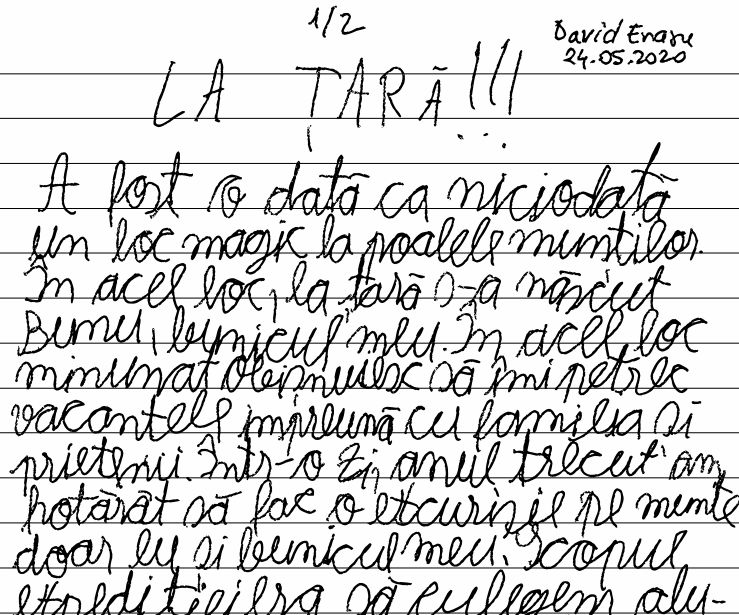 1/2
David Enasu
24.05.2020
LA ȚARĂ!!!...
A fost o dată ca niciodată
un loc magic la poalele munților.
În acel loc, la țară s-a născut
Bunu, bunicul meu. În acel loc
minunat obișnuiesc să îmi petrec
vacanțele împreună cu familia și
prietenii. Într-o zi, anul trecut am
hotărât să fac o excursie pe munte
doar eu și bunicul meu. Scopul
era să culegem alu-